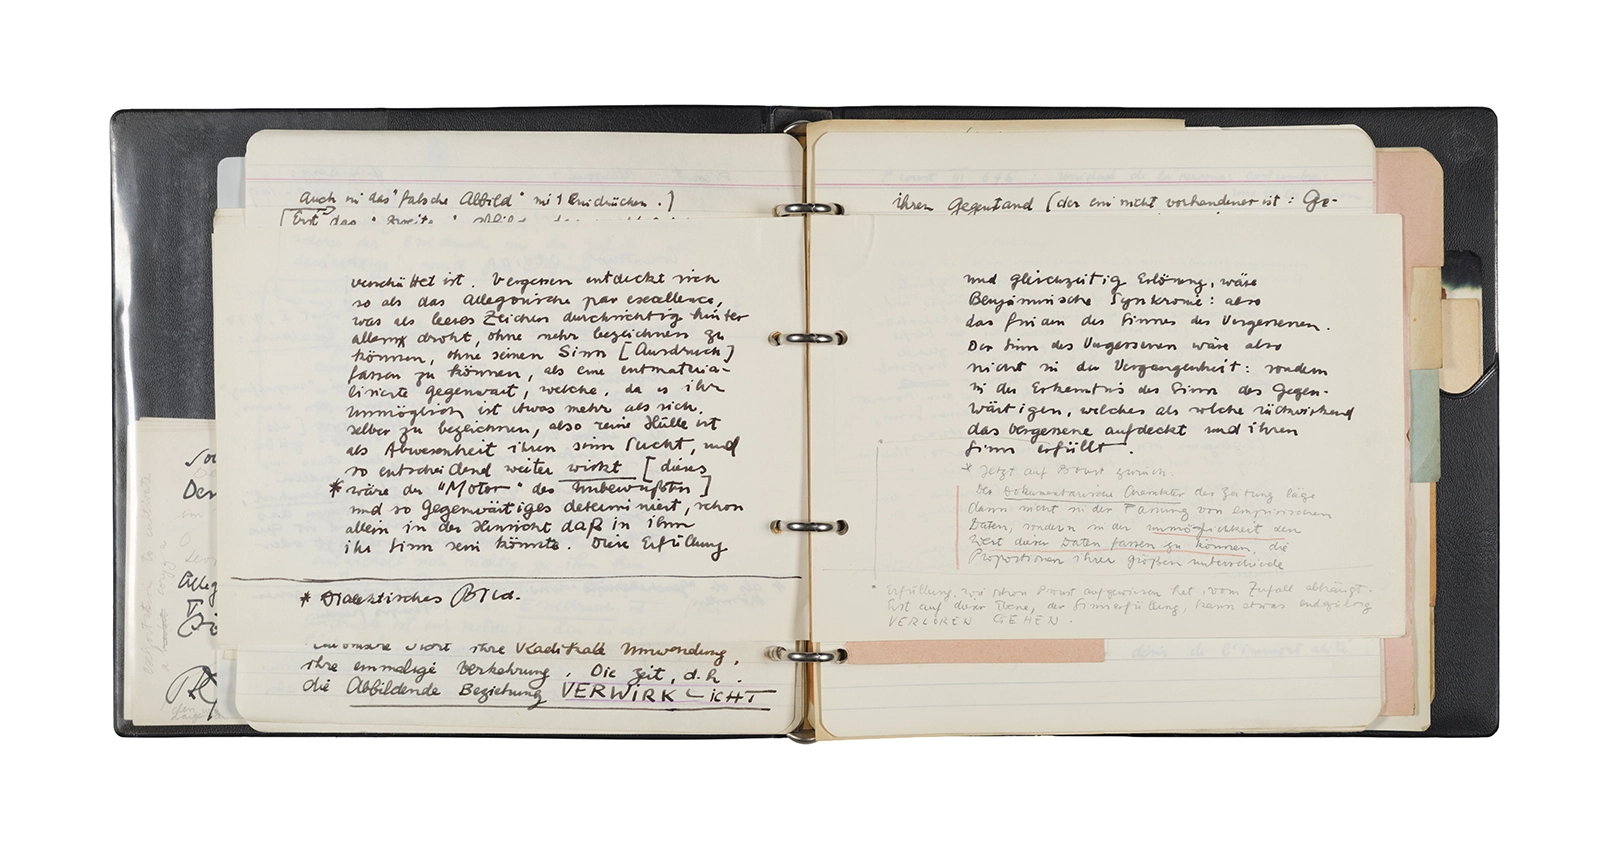 Auch in das "falsche Abbild" mit Eindrücken.]
[Erst das "zweite" Abbild
verschüttet ist. Vergessen entdeckt sich
so als das Allegorische par excellence,
was als leeres Zeichen durchsichtig hinter
allem droht, ohne mehr bezeichnen zu
können, ohne seinen Sinn [Ausdruck]
fassen zu können, als eine entmateria-
lisierte Gegenwart, welche, da es ihr
unmöglich ist etwas mehr als sich
selber zu bezeichnen, also reine Hülle ist
als Abwesenheit ihren sinn sucht, und
so entscheidend weiter wirkt [dieses
* wäre der "Motor" des Unbewußten]
und so Gegenwärtiges determiniert, schon
allein in der Hinsicht daß in ihm
ihr Sinn sein könnte. Diese Erfüllung
* Dialektisches Bild.
ihre Radikale Umwendung,
ihre einmalige Verkehrung. Die Zeit, d.h.
die Abbildende Beziehung VERWIRKLICHT
Den
Alleg
ihren Gegenstand (der ein nicht vorhandener ist: Ge-
und gleichzeitig Erlösung, wäre
Benjaminische Synkronie: also
das finden des Sinnes des Vergessenen.
Der Sinn des Vergessenen wäre also
nicht in der Vergangenheit: sondern
in der Erkenntnis des Sinn des Gegen-
wärtigen, welches als solche rückwirkend
das Vergessene aufdeckt und ihren
Sinn erfüllt.
* Jetzt auf Proust zurück.
Der Dokumentarische Charakter der Zeitung läge
dann nicht in der Fassung von empirischen
Daten, sondern in der unmöglichkeit den
Wert dieser Daten fassen zu können, die
Proportionen ihrer größen unterschiede
Erfüllung, wie schon Proust aufgewiesen hat, vom Zufall abhängt.
Erst auf dieser Ebene, der Sinnerfüllung, kann etwas endgültig
VERLOREN GEHEN.